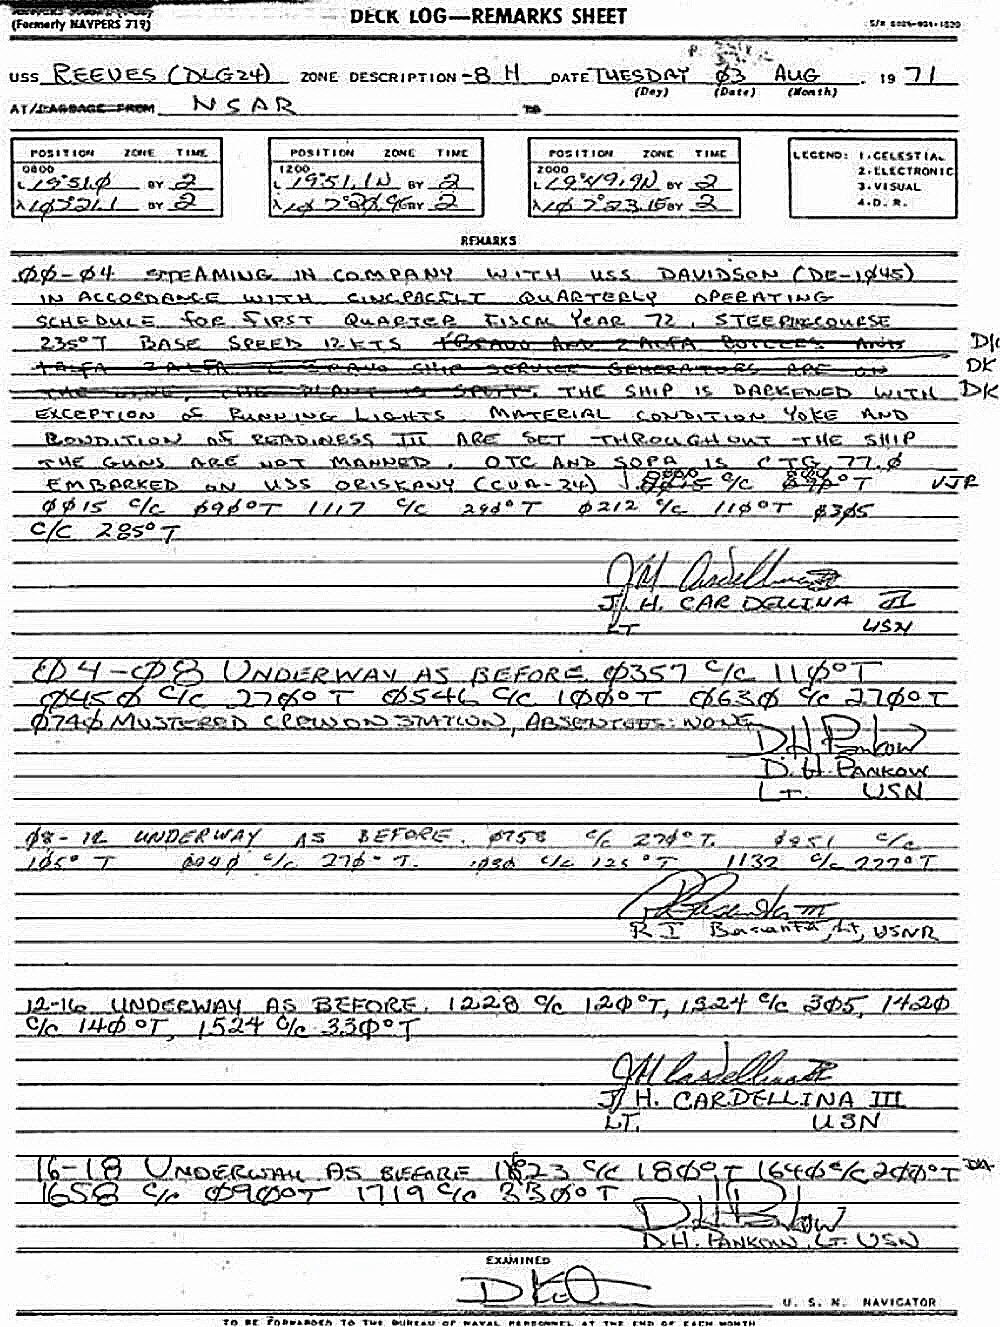 (Formerly NAVPERS 719)
DECK LOG—REMARKS SHEET
USS REEVES (DLG24) ZONE DESCRIPTION -8 H DATE TUESDAY 03 AUG 19 71
(Day) (Date) (Month)
AT/PASSAGE FROM NSAR TO
POSITION ZONE TIME
0800
L 19°51.0 BY 2
λ BY 2
POSITION ZONE TIME
1200
L 19°51.1N BY 2
λ 107°20.9E BY 2
POSITION ZONE TIME
2000
L 19°49.9N BY 2
λ 107°23.1E BY 2
LEGEND: 1. CELESTIAL
2. ELECTRONIC
3. VISUAL
4. D. R.
REMARKS
00-04 STEAMING IN COMPANY WITH USS DAVIDSON (DE-1045)
IN ACCORDANCE WITH CINCPACFLT QUARTERLY OPERATING
SCHEDULE FOR FIRST QUARTER FISCAL YEAR 72. STEERING COURSE
235°T BASE SPEED 12 KTS 1 BRAVO AND 2 ALFA BOILERS AND
1 ALFA 2 ALFA 2 BRAVO SHIP SERVICE GENERATORS ARE ON DK
THE LINE, THE PLANT IS SPLIT. THE SHIP IS DARKENED WITH DK
EXCEPTION OF RUNNING LIGHTS. MATERIAL CONDITION YOKE AND
CONDITION OF READINESS III ARE SET THROUGHOUT THE SHIP
THE GUNS ARE NOT MANNED. OTC AND SOPA IS CTG 77.0
EMBARKED ON USS ORISKANY (CVA-34) C/C °T VJR
0015 C/C 090°T 1117 C/C 290°T 0212 C/C 110°T 0305
C/C 285°T
J. H. CARDELLINA III
LT USN
04-08 UNDERWAY AS BEFORE 0357 C/C 110°T
0450 C/C 270°T 0546 C/C 100°T 0630 C/C 270°T
0740 MUSTERED CREW ON STATION, ABSENTEES: NONE
D.H. Pankow
D. H. PANKOW
LT. USN
08-12 UNDERWAY AS BEFORE. 0758 C/C 270°T. 0851 C/C
105°T 0940 C/C 270°T. 1030 C/C 125°T 1132 C/C 277°T
R I , Lt, USNR
12-16 UNDERWAY AS BEFORE. 1228 C/C 120°T, 1324 C/C 305, 1420
C/C 140°T, 1524 C/C 330°T
J H Cardellina III
J. H. CARDELLINA III
LT. USN
16-18 UNDERWAY AS BEFORE 1623 C/C 180°T 1640 C/C 200°T
1658 C/C 090°T 1719 C/C 330°T
D.H. PANKOW, LT. USN
EXAMINED
U. S. N. NAVIGATOR
TO BE FORWARDED TO THE BUREAU OF NAVAL PERSONNEL AT THE END OF EACH MONTH